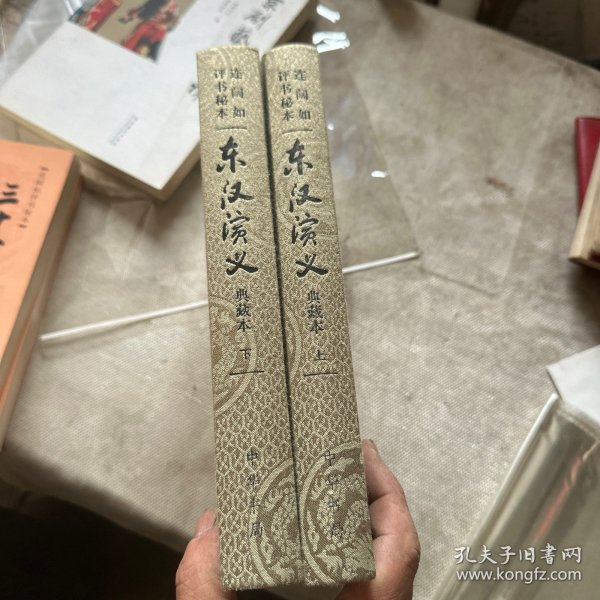 连阔如
评书秘本
东汉演义
典藏本 下
中华书局
连阔如
评书秘本
东汉演义
典藏本 上
中华书局
三
孔夫子旧书网
www.kongfz.com